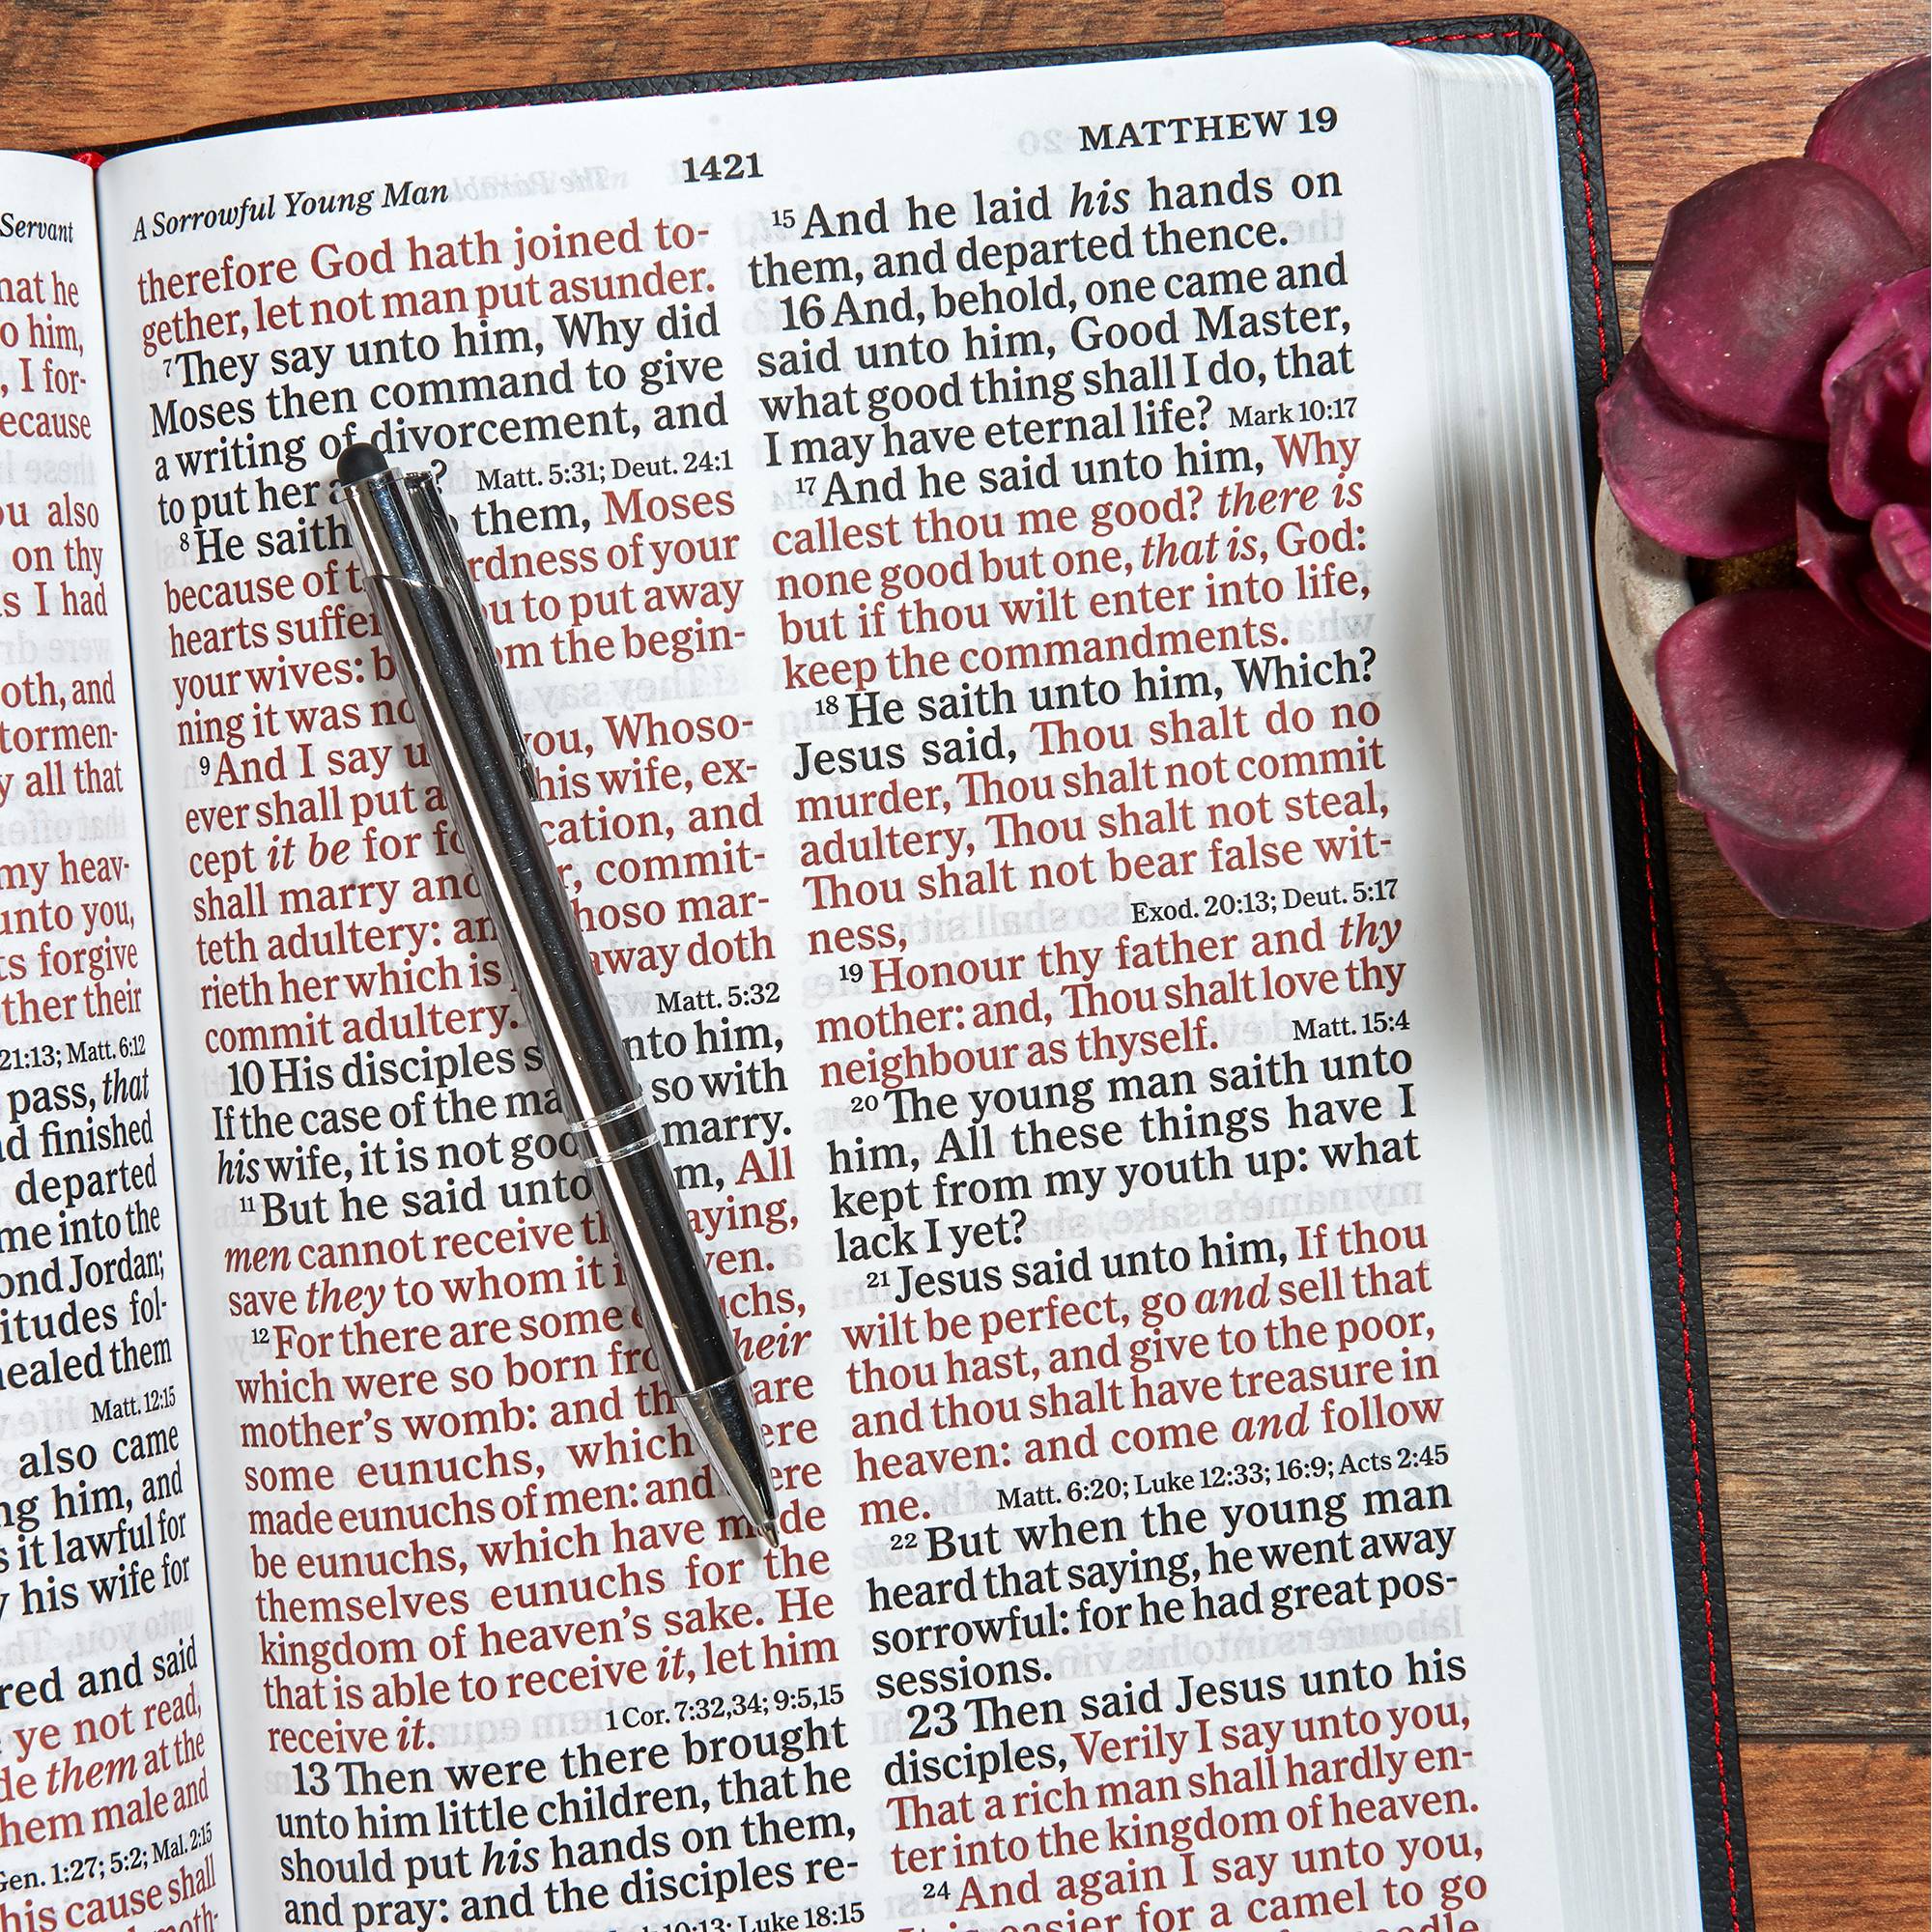 Servant
he
him,
I for-
also
on thy
I had
and
all that
my heav-
unto you,
forgive
their
21:13; Matt. 6:12
pass, that
finished
departed
into the
Jordan;
fol-
healed them
Matt. 12:15
also came
him, and
it lawful for
his wife for
and said
ye not read,
them at the
male and
Gen. 1:27; 5:2; Mal. 2:15
his cause shall
A Sorrowful Young Man 1421 MATTHEW 19
therefore God hath joined to-
gether, let not man put asunder.
7 They say unto him, Why did
Moses then command to give
a writing of divorcement, and
to put her ? Matt. 5:31; Deut. 24:1
8 He saith them, Moses
because of of your
hearts to put away
your wives: the begin-
ning it was
9 And I say you, Whoso-
ever shall put his wife, ex-
cept it be for and
shall marry commit-
teth adultery: mar-
rieth her which is away doth
commit adultery. Matt. 5:32
10 His disciples him,
If the case of the so with
his wife, it is not marry.
11 But he said unto All
men cannot receive
save they to whom it
12 For there are some
which were so born
mother's womb: and are
some eunuchs, which
made eunuchs of men: and
be eunuchs, which have made
themselves eunuchs for the
kingdom of heaven's sake. He
that is able to receive it, let him
receive it. 1 Cor. 7:32,34; 9:5,15
13 Then were there brought
unto him little children, that he
should put his hands on them,
and pray: and the disciples re-
10:13; Luke 18:15
15 And he laid his hands on
them, and departed thence.
16 And, behold, one came and
said unto him, Good Master,
what good thing shall I do, that
I may have eternal life? Mark 10:17
17 And he said unto him, Why
callest thou me good? there is
none good but one, that is, God:
but if thou wilt enter into life,
keep the commandments.
18 He saith unto him, Which?
Jesus said, Thou shalt do no
murder, Thou shalt not commit
adultery, Thou shalt not steal,
Thou shalt not bear false wit-
ness, Exod. 20:13; Deut. 5:17
19 Honour thy father and thy
mother: and, Thou shalt love thy
neighbour as thyself. Matt. 15:4
20 The young man saith unto
him, All these things have I
kept from my youth up: what
lack I yet?
21 Jesus said unto him, If thou
wilt be perfect, go and sell that
thou hast, and give to the poor,
and thou shalt have treasure in
heaven: and come and follow
me. Matt. 6:20; Luke 12:33; 16:9; Acts 2:45
22 But when the young man
heard that saying, he went away
sorrowful: for he had great pos-
sessions.
23 Then said Jesus unto his
disciples, Verily I say unto you,
That a rich man shall hardly en-
ter into the kingdom of heaven.
24 And again I say unto you,
easier for a camel to go